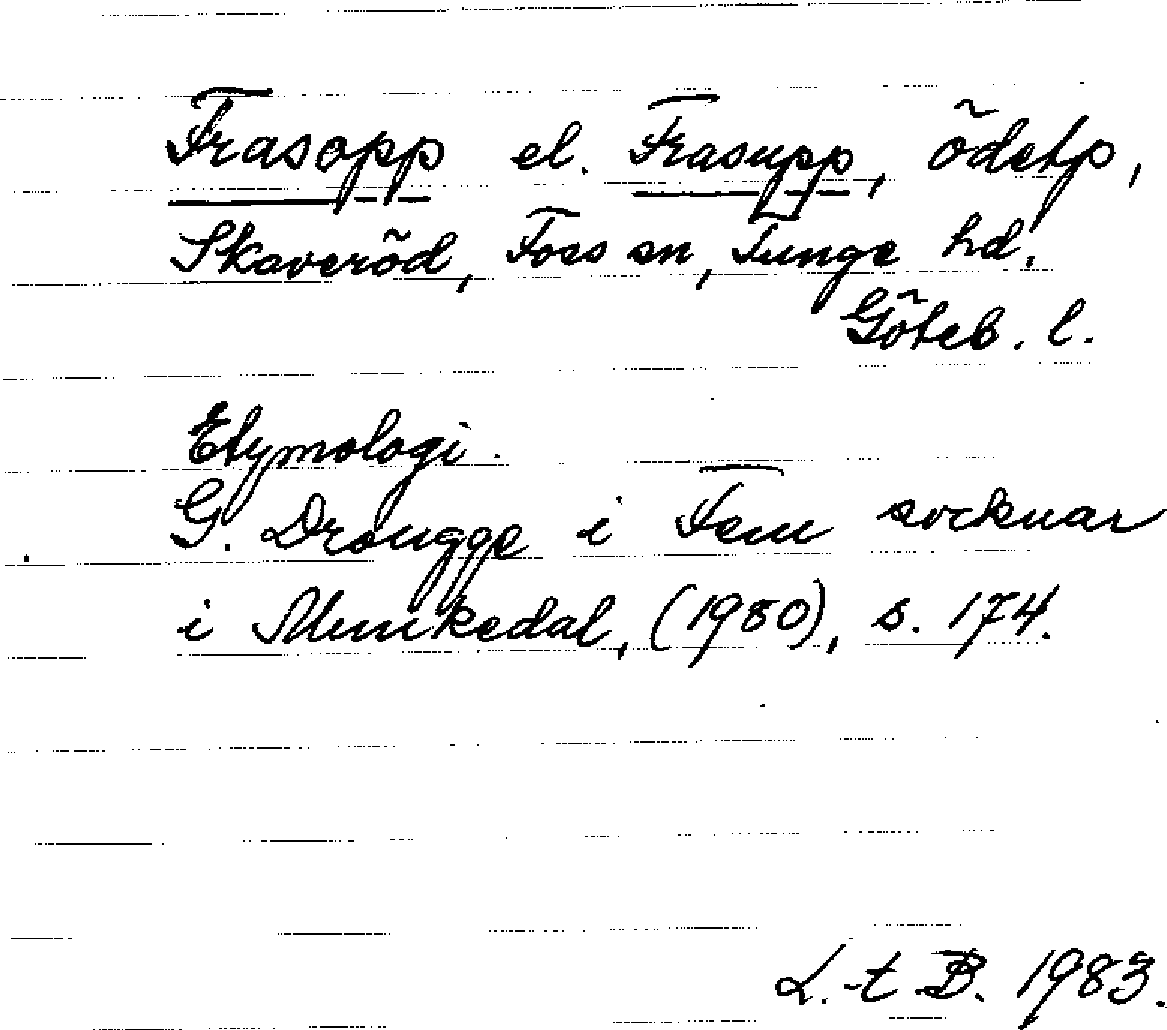 Frasopp el. Frasupp, ödetp,
Skaveröd, Foss sn, Tunge hd.
Göteb. l.
Etymologi.
G. Drougge i Fem socknar
i Munkedal, (1980), s. 174.
L.-t B. 1983.